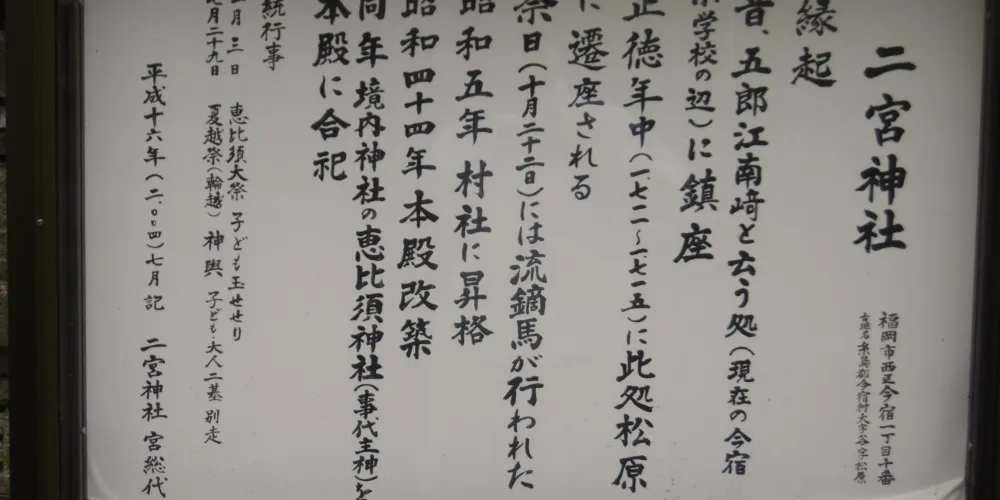 二宮神社
福岡市西区今宿一丁目十番
古地名 糸島郡今宿村大字谷字松原
縁起
昔、五郎江南﨑と云う処(現在の今宿
小学校の辺)に鎮座
正徳年中(一、七一一〜一、七一五)に此処松原
に遷座される
祭日(十月二十二日)には流鏑馬が行われた
昭和五年 村社に昇格
昭和四十四年本殿改築
同年境内神社の恵比須神社(事代主神)を
本殿に合祀
統行事
月三日 恵比須大祭 子ども玉せせり
七月二十九日 夏越祭(輪越) 神輿 子ども・大人二基別走
平成十六年(二、〇〇四)七月記 二宮神社 宮総代